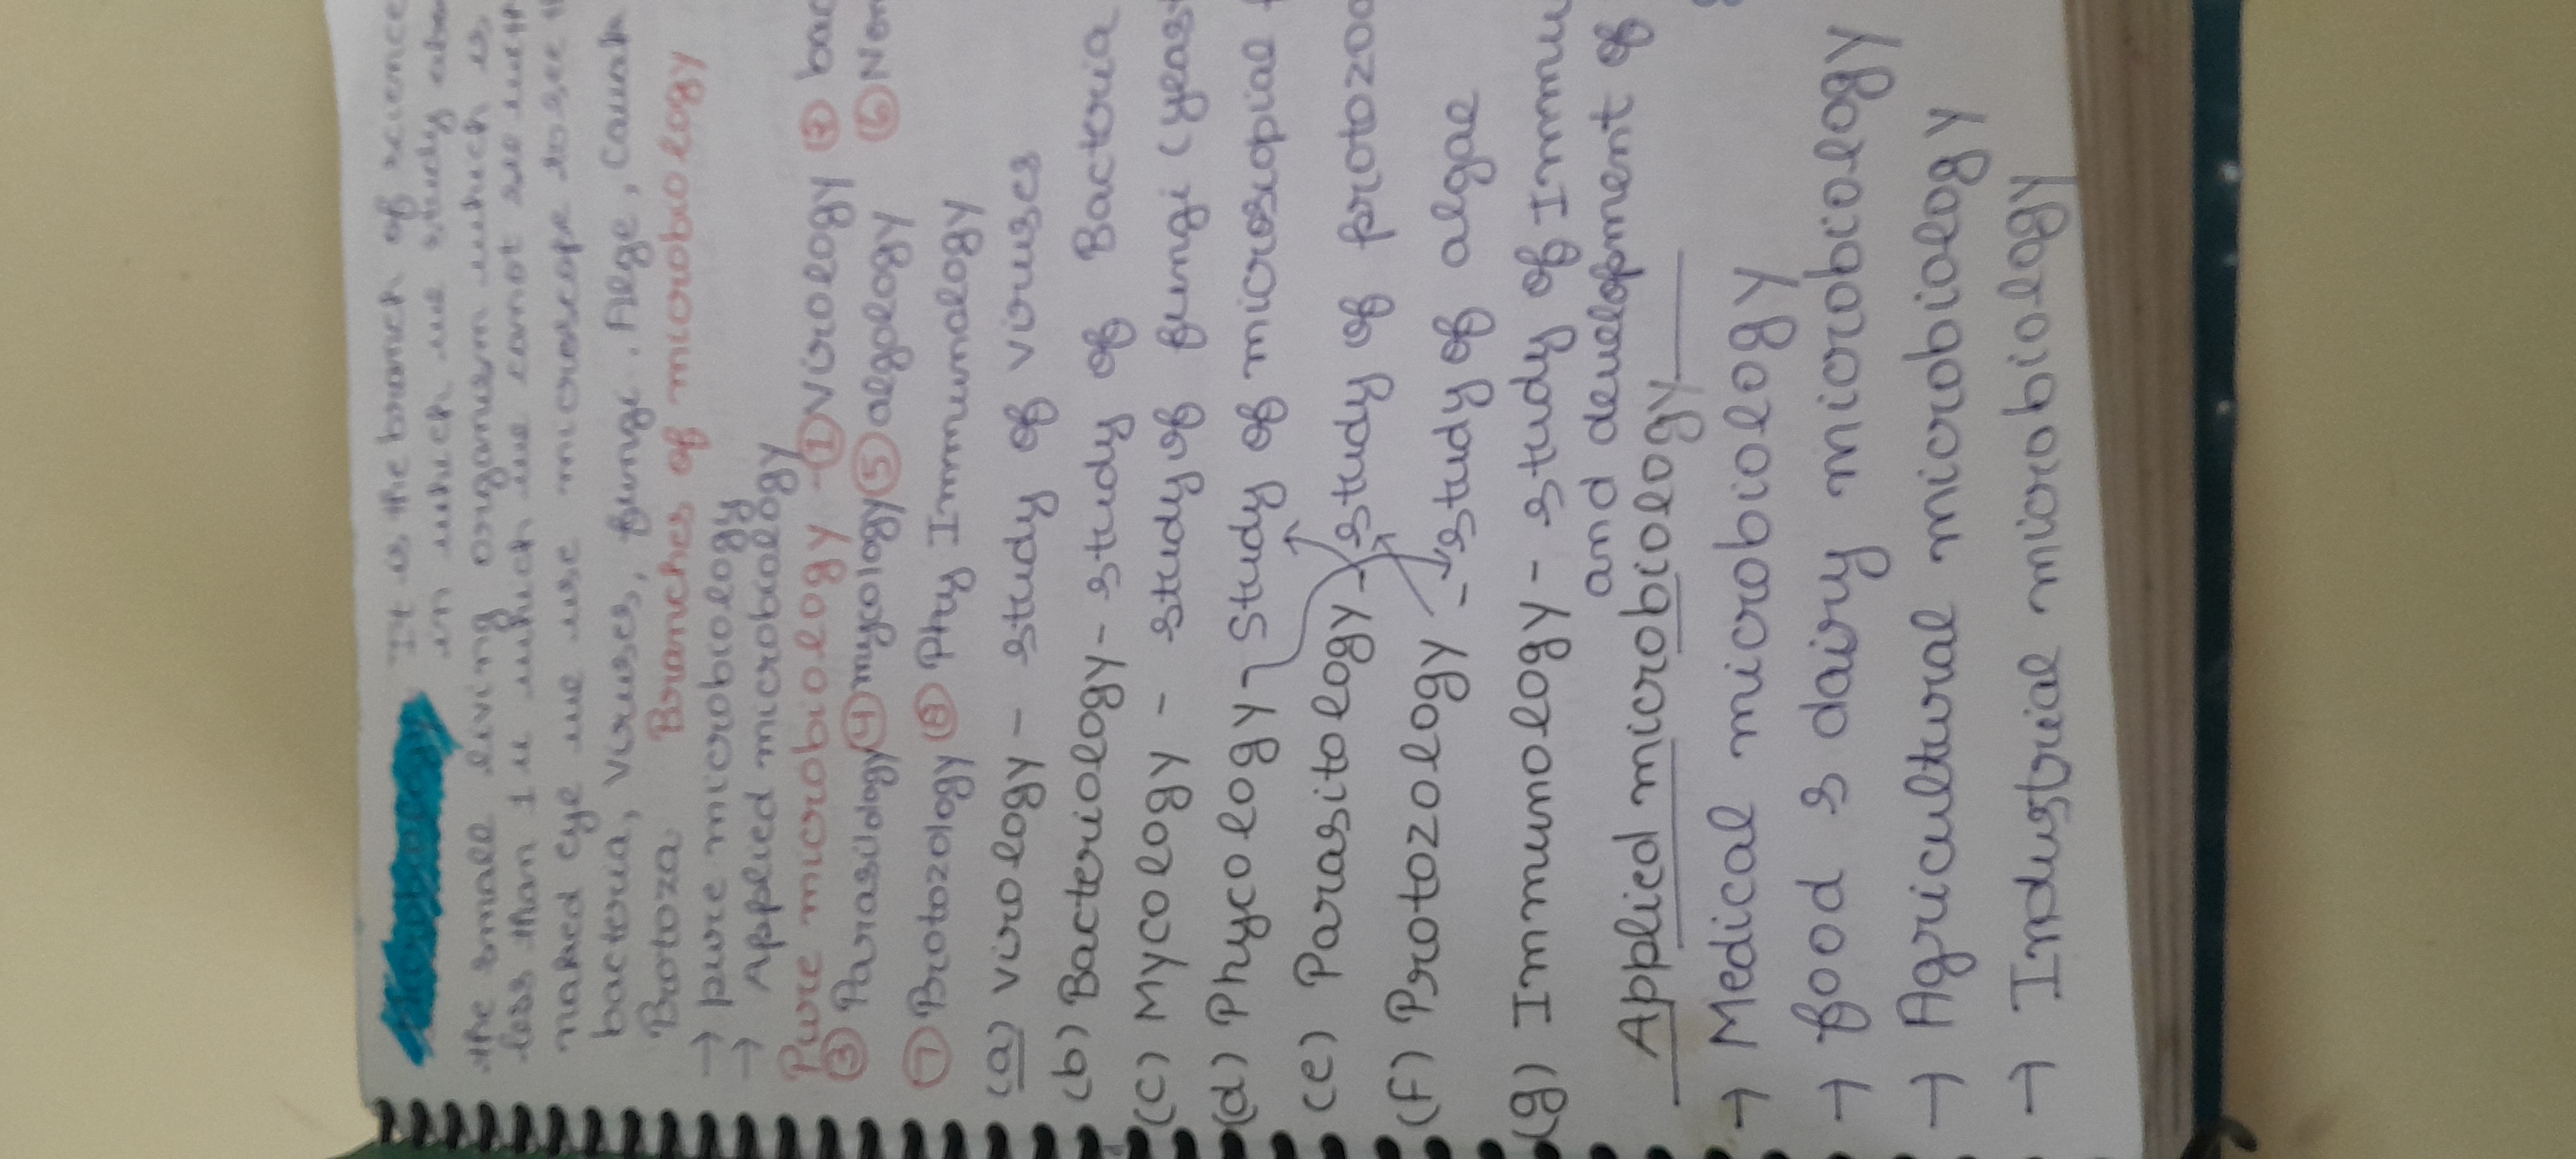 Microbiology It is the branch of science
in which we study abo
the small living organism which is
less than 1 u which we connot see with
naked eye we use microscope to see th
bacteria, Viruses, fungi, Alge,
Brotoza Branches of microbiology
→ pure microbiology
→ Applied microbiology
Pure microbiology - ① Virology ② bac
③ Parasitology ④ mycology ⑤ algology ⑥ Nem
⑦ Brotozology ⑧ Phy Immunology
(a) virology - study of viruses
(b) Bacteriology - study of Bacteria
(c) Mycology - study of fungi (yeast
(d) Phycology - study of microscopial
(e) Parasitology - study of protozoa
(f) Protozology - study of algae
(g) Immunology - study of Immu
and development of
Applied microbiology
→ Medical microbiology
→ food & dairy microbiology
→ Agricultural microbiology
→ Industrial microbiology